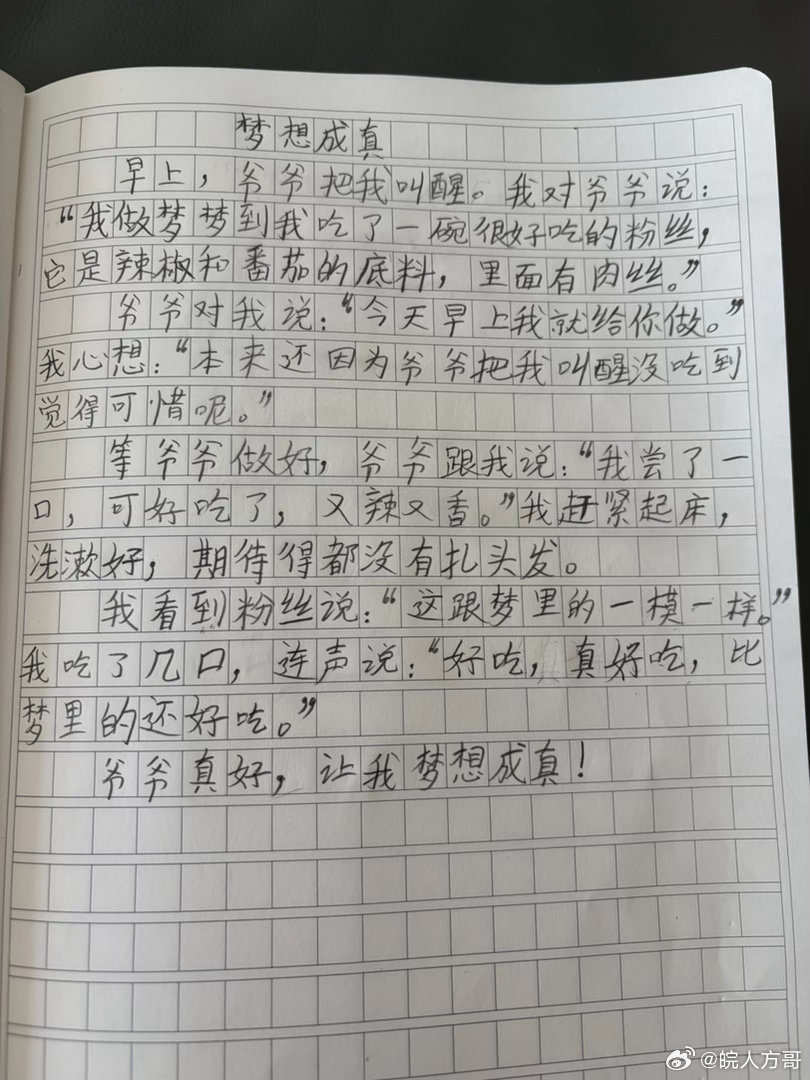 梦想成真
早上，爷爷把我叫醒。我对爷爷说：
“我做梦梦到我吃了一碗很好吃的粉丝，
它是辣椒和番茄的底料，里面有肉丝。”
爷爷对我说：“今天早上我就给你做。”
我心想：“本来还因为爷爷把我叫醒没吃到
觉得可惜呢。”
等爷爷做好，爷爷跟我说：“我尝了一
口，可好吃了，又辣又香。”我赶紧起床，
洗漱好，期待得都没有扎头发。
我看到粉丝说：“这跟梦里的一模一样。”
我吃了几口，连声说：“好吃，真好吃，比
梦里的还好吃。”
爷爷真好，让我梦想成真！
@皖人方哥